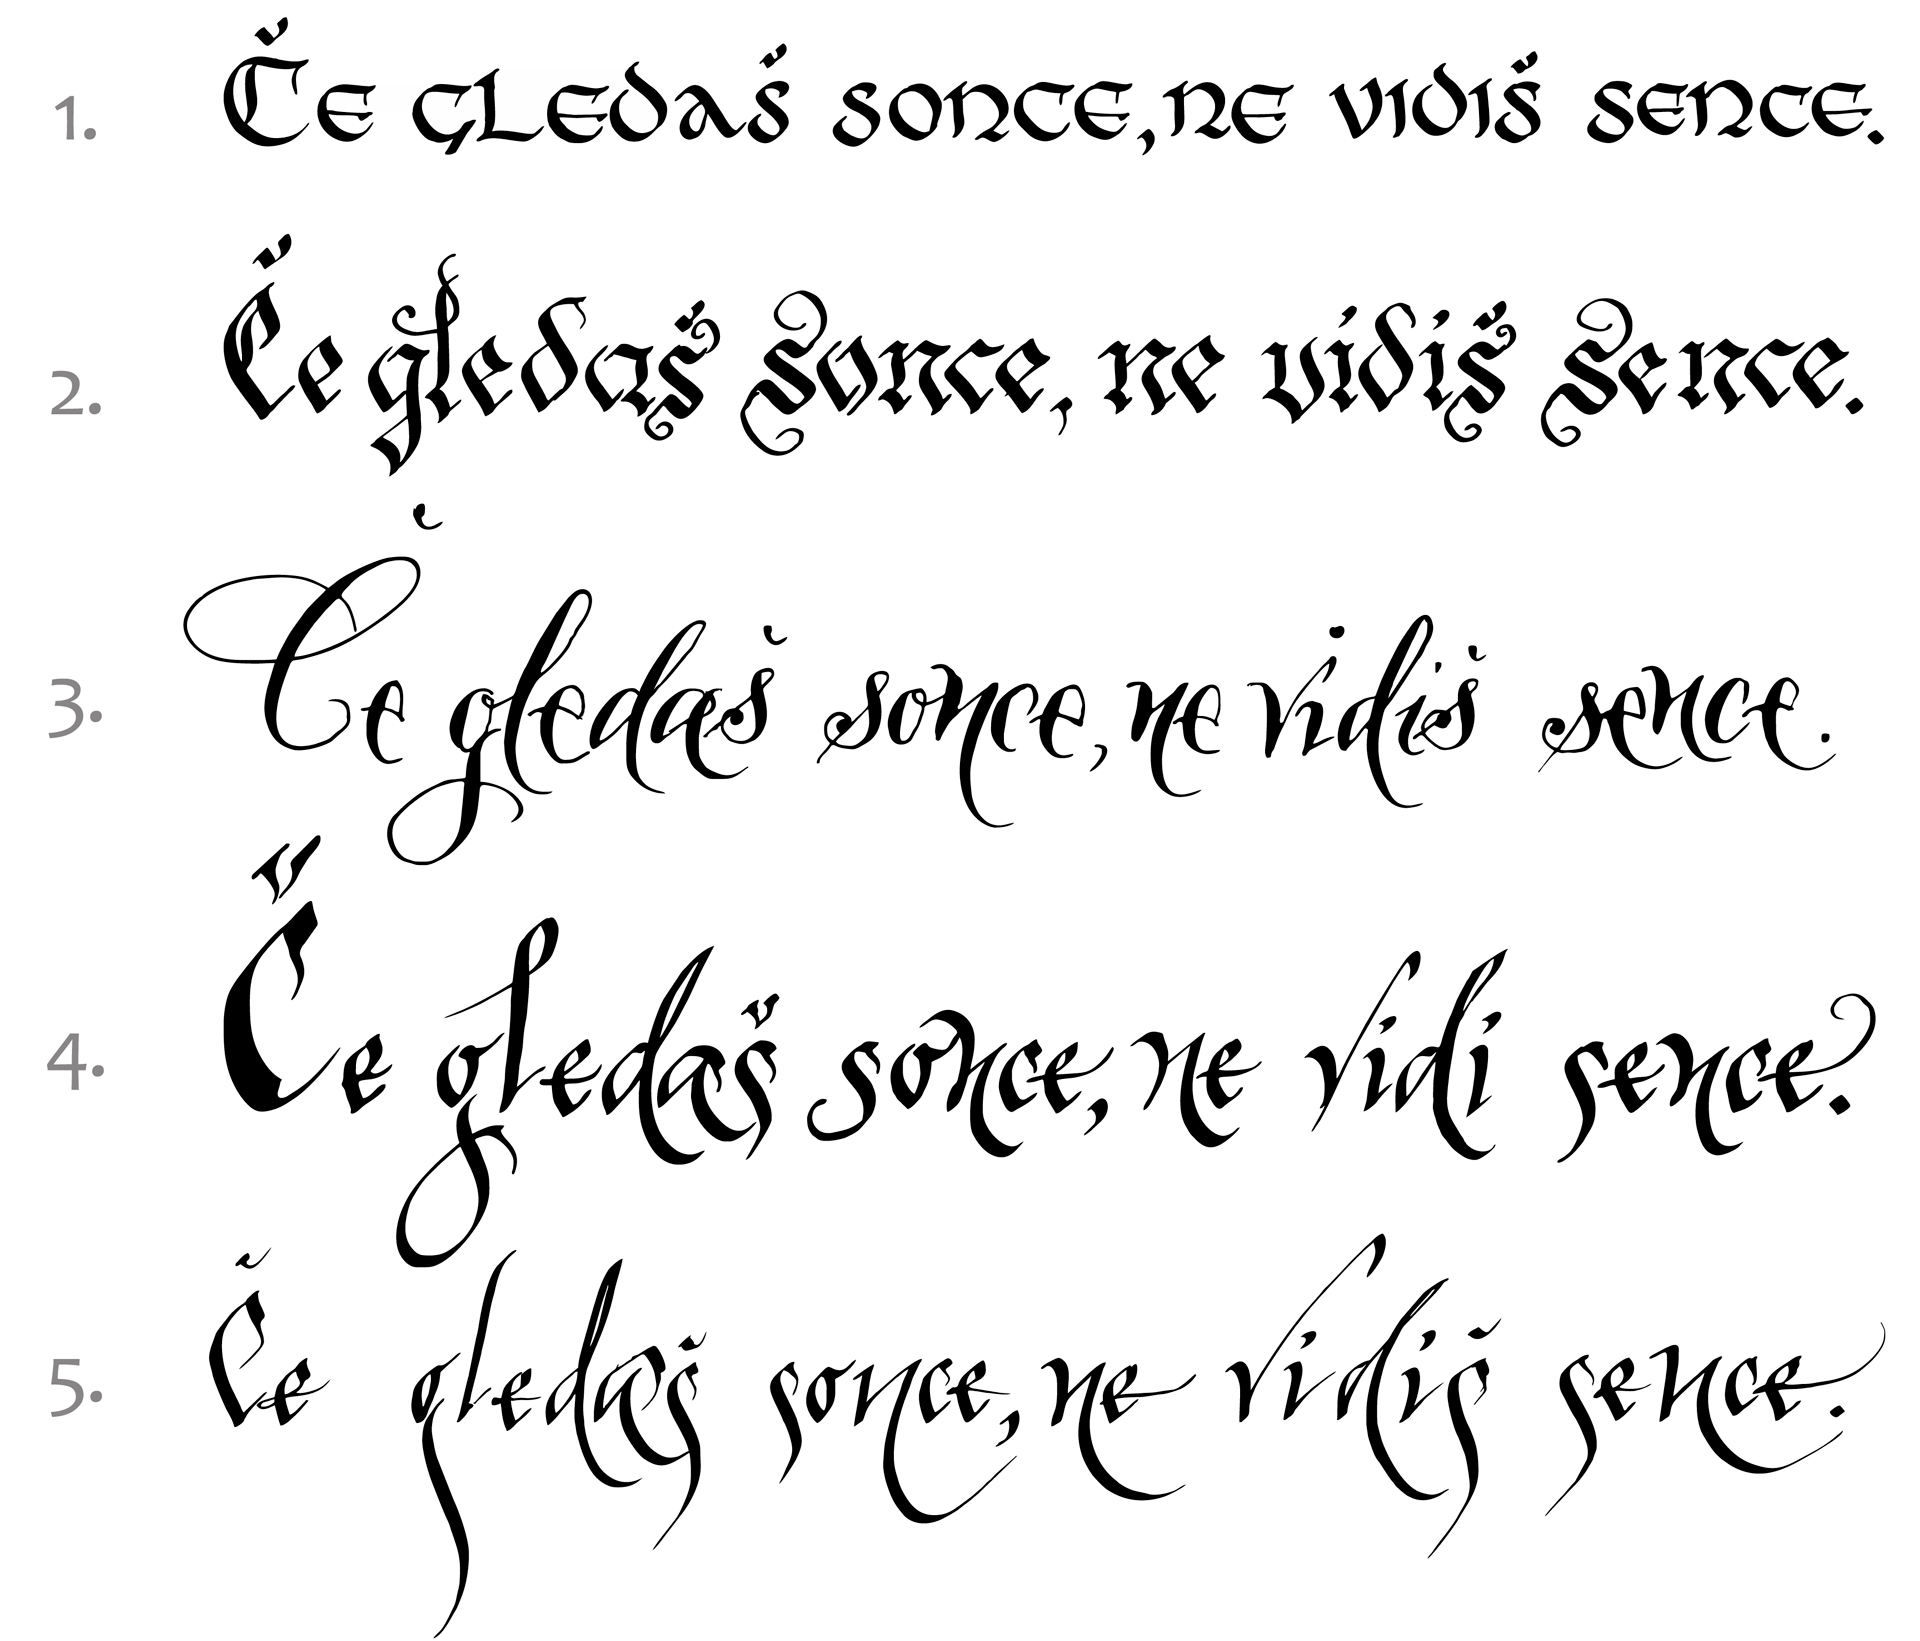 1. Če gledaš sonce, ne vidiš sence.
2. Če gledaš sonce, ne vidiš sence.
3. Če gledaš sonce, ne vidiš sence.
4. Če gledaš sonce, ne vidi sence.
5. Če gledaš sonce, ne vidiš sence.